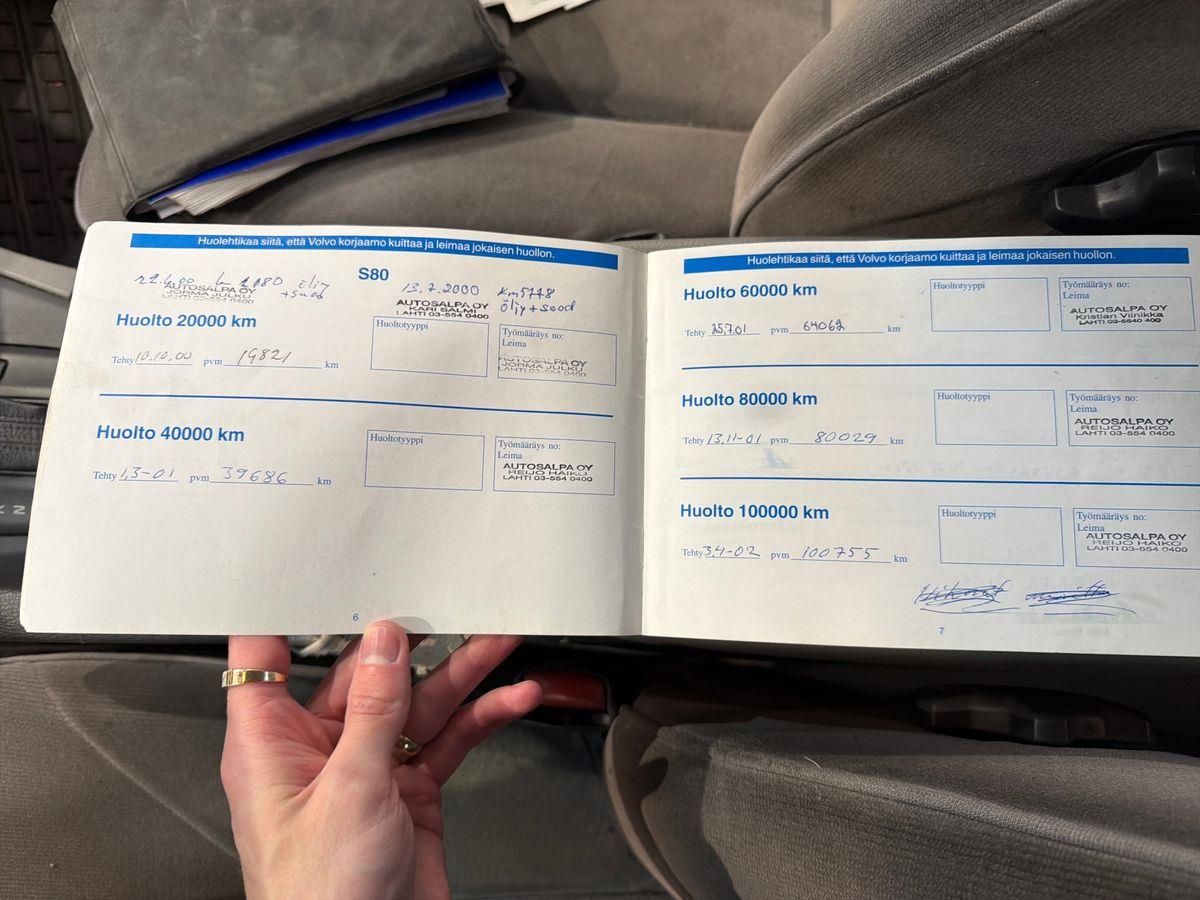 Huolehtikaa siitä, että Volvo korjaamo kuittaa ja leimaa jokaisen huollon.
S80
öljy
+suod
AUTOSALPA OY
JORMA JULKU
LAHTI 03-554 0400
13.7.2000 Km5778
öljy+suod
AUTOSALPA OY
KARI SALMI
LAHTI 03-554 0400
Huolto 20000 km
Tehty 10.10.00 pvm 19821 km
Huoltotyyppi
Työmääräys no:
Leima
AUTOSALPA OY
JORMA JULKU
LAHTI 03-554 0400
Huolto 40000 km
Tehty 1,3-01 pvm 39686 km
Huoltotyyppi
Työmääräys no:
Leima
AUTOSALPA OY
REIJO HAIKO
LAHTI 03-554 0400
6
Huolehtikaa siitä, että Volvo korjaamo kuittaa ja leimaa jokaisen huollon.
Huolto 60000 km
Tehty 25.7.01 pvm 64062 km
Huoltotyyppi
Työmääräys no:
Leima
AUTOSALPA OY
Kristian Viinikka
LAHTI 03-5540 400
Huolto 80000 km
Tehty 13.11-01 pvm 80029 km
Huoltotyyppi
Työmääräys no:
Leima
AUTOSALPA OY
REIJO HAIKO
LAHTI 03-554 0400
Huolto 100000 km
Tehty 3.4-02 pvm 100755 km
Huoltotyyppi
Työmääräys no:
Leima
AUTOSALPA OY
REIJO HAIKO
LAHTI 03-554 0400
7